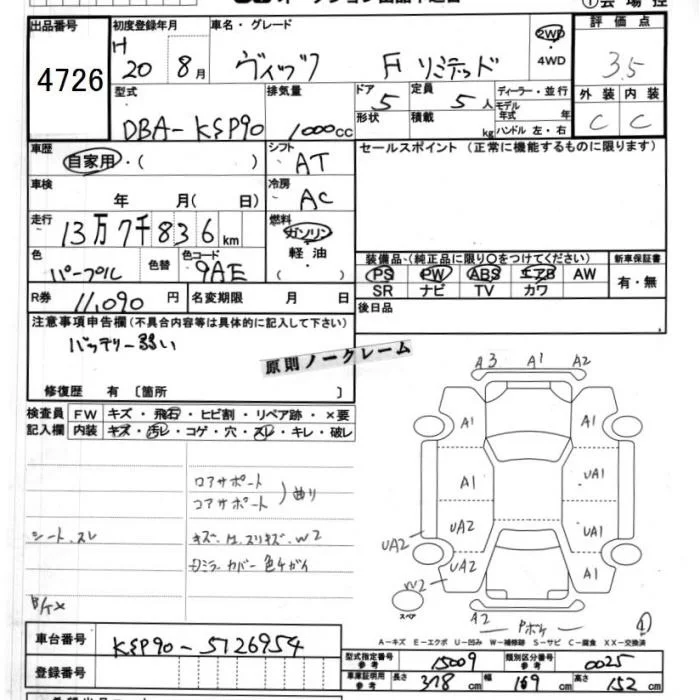 出品番号
4726
初度登録年月
H 20 8月
車名・グレード
ヴィッツ F リミテッド
2WD
・
4WD
評価点
3.5
外装 内装
C C
型式
DBA-KSP90
排気量
1000cc
ドア 5
形状
定員 5人
積載 kg
ディーラー・並行
モデル年式 年
ハンドル 左・右
車歴
自家用・( )
シフト
AT
車検
年 月( 日)
冷房
AC
走行
13万7千836km
燃料
ガソリン
軽油
・
色
パープル
色替
色コード
9AE
R券 11,090円
名変期限 月 日
セールスポイント (正常に機能するものに限ります)
装備品(純正品に限り○をつけてください)
PS PW ABS エアB AW
SR ナビ TV カワ
新車保証書
有・無
後日品
注意事項申告欄(不具合内容等は具体的に記入して下さい)
バッテリー弱い
原則ノークレーム
修復歴 有 〔箇所 〕
検査員記入欄
FW キズ・飛石・ヒビ割・リペア跡・×要
内装 キズ・汚レ・コゲ・穴・スレ・キレ・破レ
ロアサポート
コアサポート
) 曲り
シート、スレ
キズ・凹、スリキズ、W2
ミラーカバー色チガイ
A3 A1 A2
A1 A1
A1 UA1
UA2 UA2 UA1
W2 UA2 A1
スペア
A2
Pボケ
①
A-キズ E-エクボ U-凹み W-補修跡 S-サビ C-腐食 XX-交換済
車台番号
KSP90-5126954
登録番号
型式指定番号 参考 15009
類別区分番号 参考 0025
車庫証明用 参考 長さ 378cm 幅 169cm 高さ 152cm